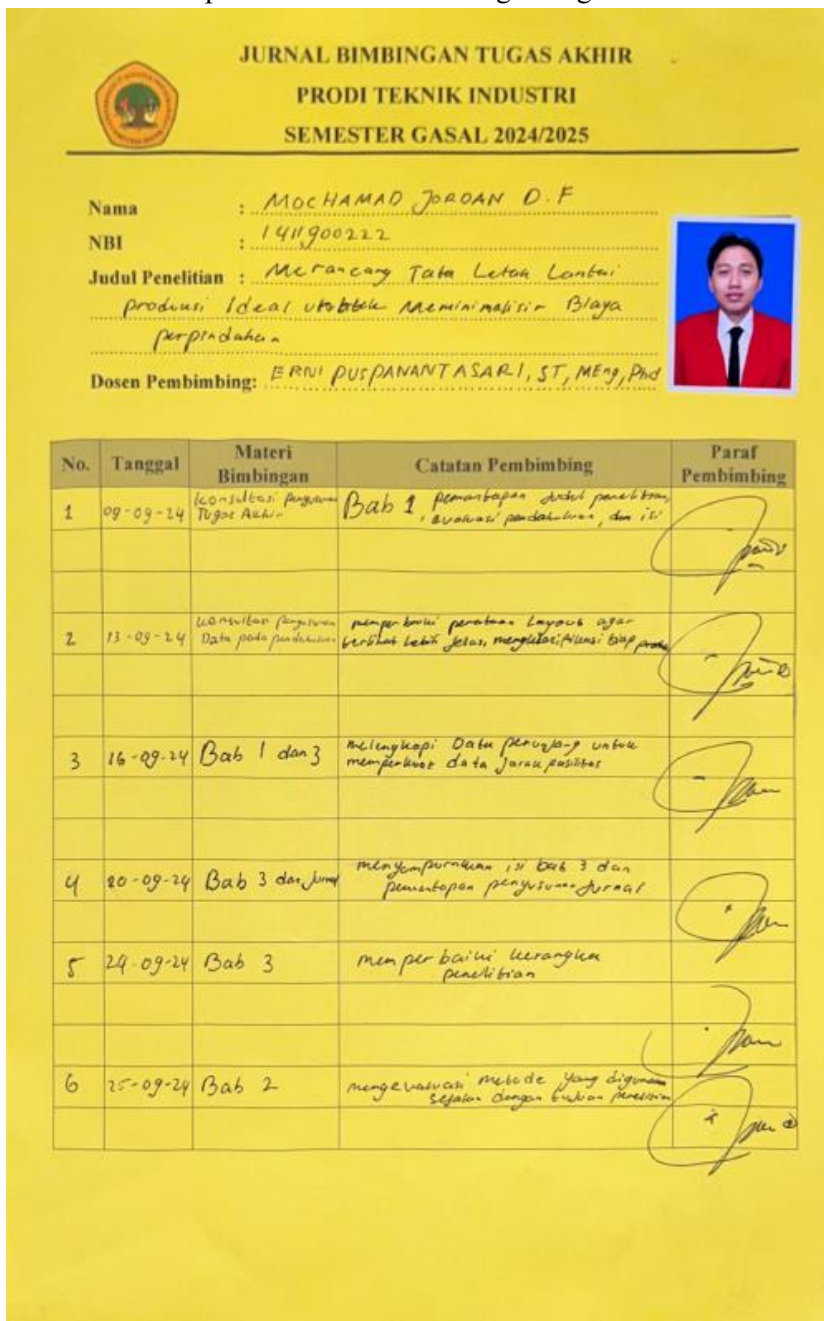 JURNAL BIMBINGAN TUGAS AKHIR
PRODI TEKNIK INDUSTRI
SEMESTER GASAL 2024/2025
Nama : MOCHAMAD JORDAN D.F
NBI : 1411900222
Judul Penelitian : Merancang Tata Letak Lantai
produksi Ideal Meminimalisir Biaya
perpindahan
Dosen Pembimbing: ERNI PUSPANANTASARI, ST, MEng, Phd
No. Tanggal Materi Bimbingan Catatan Pembimbing Paraf Pembimbing
1 09-09-24 Konsultasi Penyusunan Tugas Akhir Bab 1 pemantapan Judul penelitian, evaluasi pendahuluan, dan isi
2 13-09-24 Konsultasi Penyusunan Data pada pendahuluan memperbaiki penataan Layout agar terlihat lebih jelas, mengklasifikasi tiap
3 16-09-24 Bab 1 dan 3 melengkapi Data penunjang untuk memperkuat data Jarak fasilitas
4 20-09-24 Bab 3 dan Jurnal menyempurnakan isi bab 3 dan pemantapan penyusunan Jurnal
5 24-09-24 Bab 3 memperbaiki kerangka penelitian
6 25-09-24 Bab 2 mengevaluasi metode yang digunakan sejalan dengan tujuan penelitian